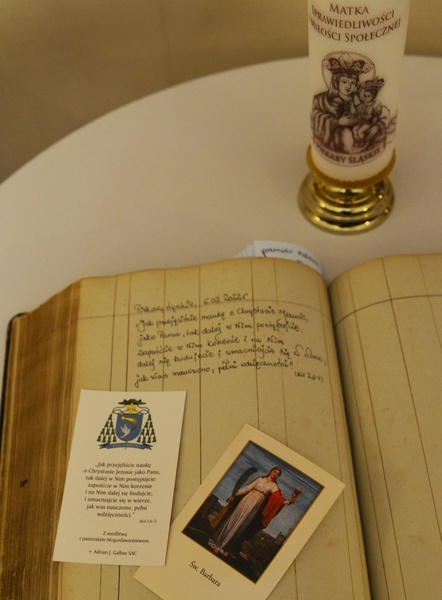 MATKA
SPRAWIEDLIWOŚCI
I MIŁOŚCI SPOŁECZNEJ
PIEKARY ŚLĄSKIE
Piekary Śląskie, 6.02.2022r.
"Jak przejęliście naukę o Chrystusie Jezusie
jako Panu, tak dalej w Nim postępujcie:
zapuśćcie w Nim korzenie i na Nim
dalej się budujcie i umacniajcie się w wierze,
jak was nauczono, pełni wdzięczności"
(Kol 2,6-7)
„Jak przejęliście naukę
o Chrystusie Jezusie jako Panu,
tak dalej w Nim postępujcie:
zapuśćcie w Nim korzenie
i na Nim dalej się budujcie,
i umacniajcie się w wierze,
jak was nauczono, pełni
wdzięczności.”
(Kol 2,6-7)
Z modlitwą
i pasterskim błogosławieństwem
+ Adrian J. Galbas SAC
Św. Barbara